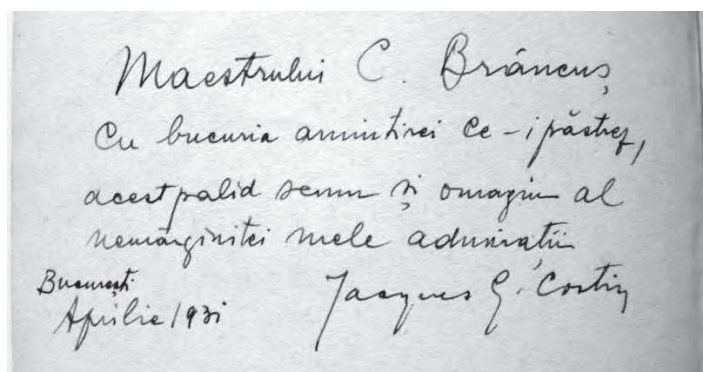 Maestrului C. Brâncuș
Cu bucuria amintirei ce-i păstrez,
acest palid semn și omagiu al
nemărginitei mele admirații
București
Aprilie 1931
Jacques G. Costin